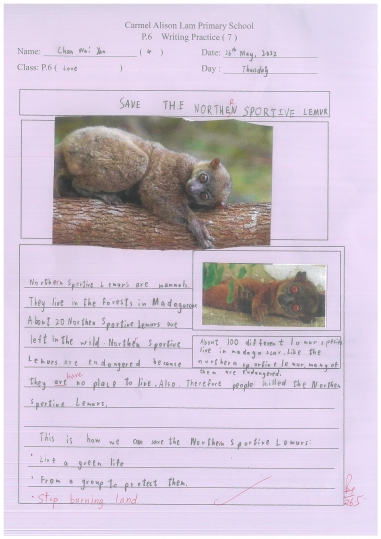 Carmel Alison Lam Primary School
P.6 Writing Practice ( 7 )
Name: Chan Wai Yan ( 4 ) Date: 26th May, 2022
Class: P.6 ( Love ) Day : Thursday
SAVE THE NORTHERN SPORTIVE LEMUR
Northern Sportive Lemurs are mammals.
They live in the forests in Madagascar.
About 20 Northern Sportive Lemurs are
left in the wild. Northern Sportive
Lemurs are endangered because
About 100 different lumur species
live in madagascar. Like the
northern sportive lemur, many of
them are endangered.
have
they are no place to live. Also. Therefore people killed the Northern
Sportive Lemurs.
This is how we can save the Northern Sportive Lemurs:
· Live a green life
· From a group to protect them.
· Stop burning land